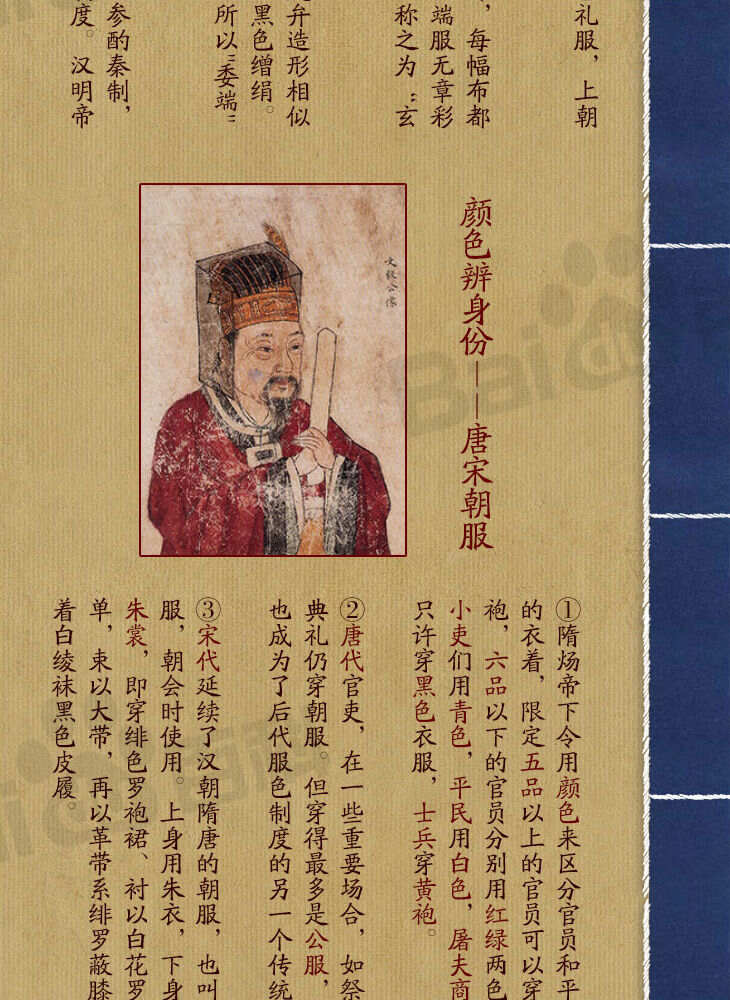 礼服，上朝
，每幅布都
端服无章彩
称之为“玄
弁造形相似
黑色缯绢。
所以“委端”
参酌秦制，
度。汉明帝
颜色辨身份——唐宋朝服
①隋炀帝下令用颜色来区分官员和平
的衣着，限定五品以上的官员可以穿
袍，六品以下的官员分别用红绿两色
小吏们用青色，平民用白色，屠夫商
只许穿黑色衣服，士兵穿黄袍。
②唐代官吏，在一些重要场合，如祭
典礼仍穿朝服。但穿得最多是公服，
也成为了后代服色制度的另一个传统
③宋代延续了汉朝隋唐的朝服，也叫
服，朝会时使用。上身用朱衣，下身
朱裳，即穿绯色罗袍裙、衬以白花罗
单，束以大带，再以革带系绯罗蔽膝
着白绫袜黑色皮履。